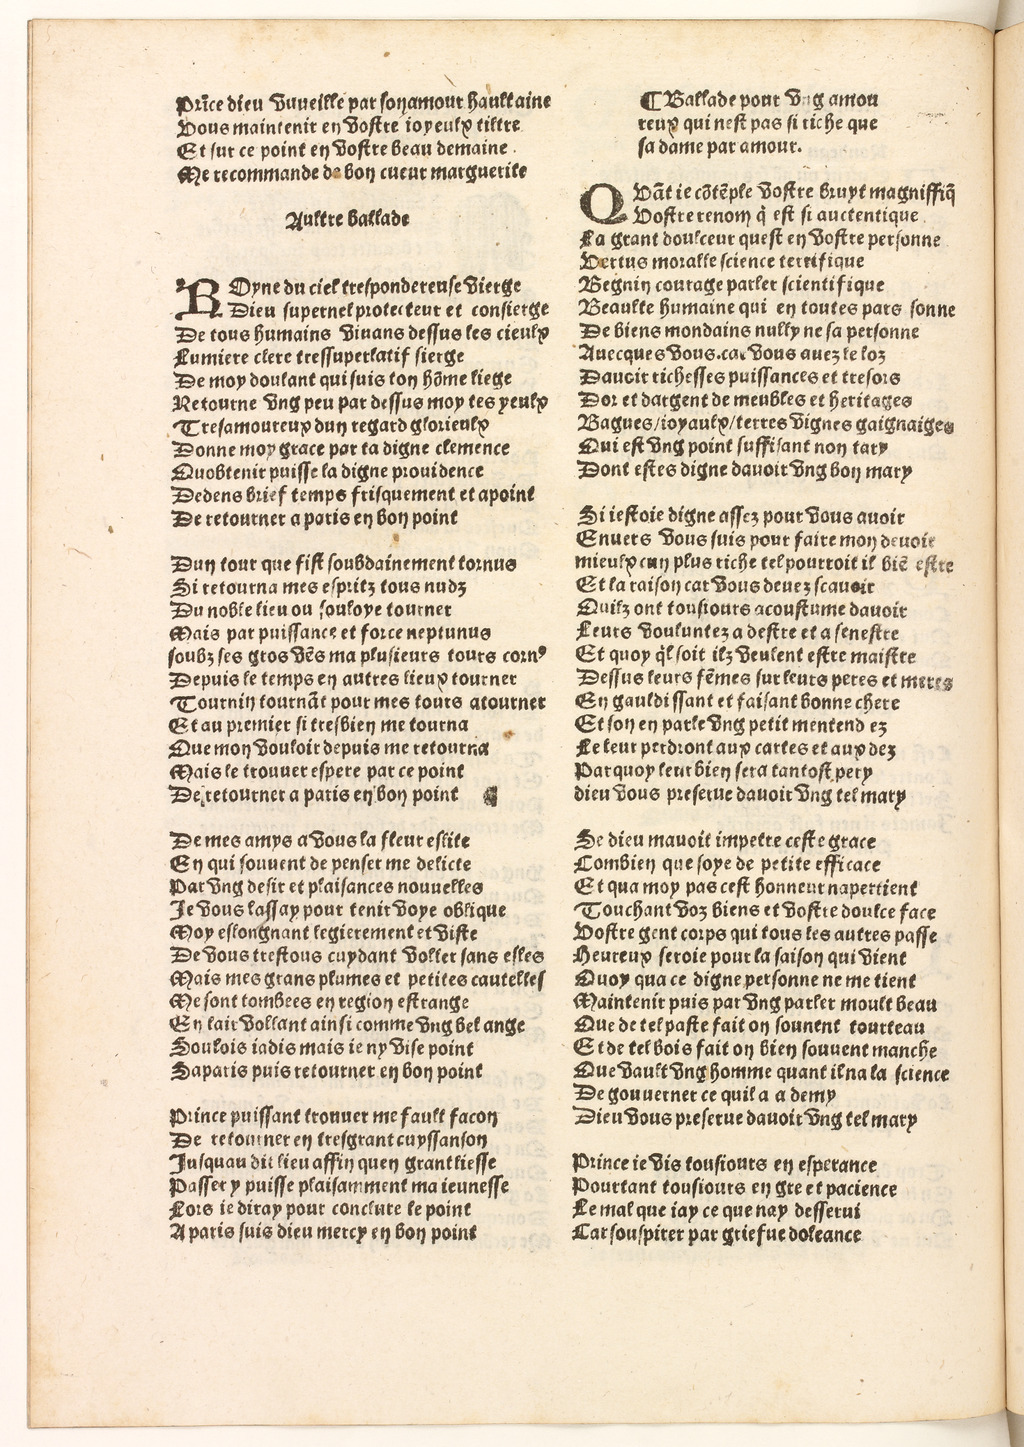 Prīce dieu vuueille par son amour haultaine
Vous maintenir en vostre ioyeulx tiltre
Et sur ce point en vostre beau demaine.
Me recommande de bon cueur marguerite
Aultre ballade
ROyne du ciel trespondereuse vierge
Dieu supernel protecteur et consierge
De tous humains viuans dessus les cieulx
Lumiere clere tressuperlatif sierge
De moy doulant qui suis ton hōme liege
Retourne vng peu par dessus moy tes yeulx
Tresamoureux dun regard glorieulx
Donne moy grace par ta digne clemence
Quobtenir puisse la digne prouidence
Dedens brief temps frisquement et apoint
De retourner a paris en bon point
Dun tour que fist soubdainement tornus
Si retourna mes espritz tous nudz
Du noble lieu ou souloye tourner
Mais par puissance et force neptunus
soubz ses gros vēs ma plusieurs tours cornꝰ
Depuis le temps en autres lieux tourner
Tournin tournāt pour mes tours atourner
Et au premier si tresbien me tourna
Que mon vouloir depuis me retourna
Mais le trouuer espere par ce point
De retourner a paris en bon point
De mes amys a vous la fleur eslite
En qui souuent de penser me delicte
Par vng desir et plaisances nouuelles
Je vous lassay pour tenir voye oblique
Moy eslongnant legierement et viste
De vous trestous cuydant voller sans esles
Mais mes grans plumes et petites cautelles
Me sont tombees en region estrange
En lair vollant ainsi comme vng bel ange
Soulois iadis mais ie ny vise point
Saparis puis retourner en bon point
Prince puissant trouuer me fault facon
De retourner en tresgrant cuyssanson
Jusquau dit lieu affin quen grant liesse
Passer y puisse plaisamment ma ieunesse
Lors ie diray pour conclure le point
A paris suis dieu mercy en bon point
¶ Ballade pour vng amou
reux qui nest pas si riche que
sa dame par amour.
QVāt ie cōtēple vostre bruyt magniffiq̄
Vostre renom q̄ est si auctentique
La grant doulceur quest en vostre personne
Vertus moralle science terrifique
Begnin courage parler scientifique
Beaulte humaine qui en toutes pars sonne
De biens mondains nully ne sa personne
Auecques vous.car vous auez le loz
Dauoir richesses puissances et tresors
Dor et dargent de meubles et heritages
Bagues/ioyaulx/terres vignes gaignaiges
Qui est vng point suffisant non tary
Dont estes digne dauoir vng bon mary
Si iestoie digne assez pour vous auoir
Enuers vous suis pour faire mon deuoir
mieulx cun plus riche tel pourroit il biē estre
Et la raison car vous deuez scauoir
Quilz ont tousiours acoustume dauoir
Leurs vouluntez a destre et a senestre
Et quoy q̄l soit ilz veulent estre maistre
Dessus leurs fēmes sur leurs peres et meres
En gauldissant et faisant bonne chere
Et son en parle vng petit mentendez
Le leur perdront aux cartes et aux dez
Parquoy leur bien sera tantost pery
dieu vous preserue dauoir vng tel mary
Se dieu mauoit impetre ceste grace
Combien que soye de petite efficace
Et qua moy pas cest honneur napertient
Touchant voz biens et vostre doulce face
Vostre gent corps qui tous les autres passe
Heureux seroie pour la saison qui vient
Quoy qua ce digne personne ne me tient
Maintenir puis par vng parler moult beau
Que de tel paste fait on souuent tourteau
Et de tel bois fait on bien souuent manche
Que vault vng homme quant il na la science
De gouuerner ce quil a a demy
Dieu vous preserue dauoir vng tel mary
Prince ie vis tousiours en esperance
Pourtant tousiours en gre et pacience
Le mal que iay ce que nay desserui
Car souspirer par griefue doleance